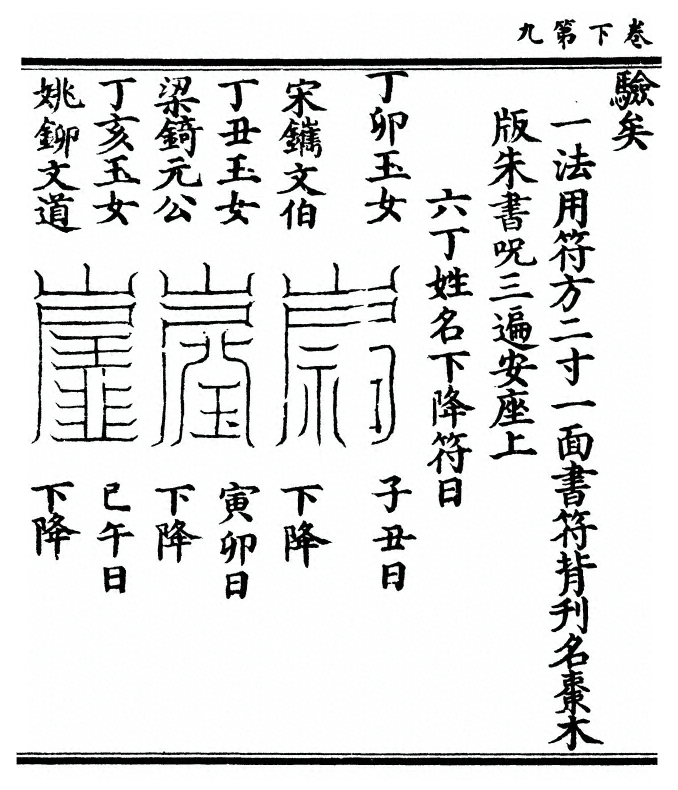 卷下第九
驗矣
一法用符方二寸一面書符背刋名棗木
版朱書呪三遍安座上
六丁姓名下降符日
丁卯玉女
子丑日
宋鑴文伯
下降
丁丑玉女
寅卯日
梁錡元公
下降
丁亥玉女
巳午日
姚鉚文道
下降